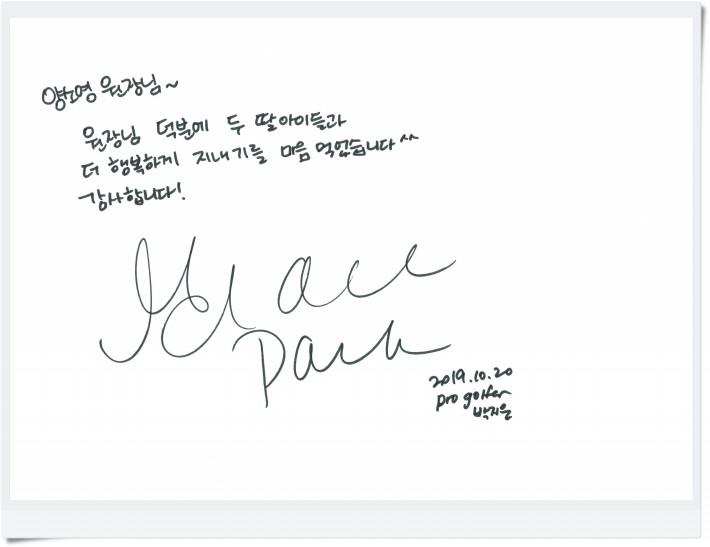 양소영 원장님~
원장님 덕분에 두 딸아이들과
더 행복하게 지내기를 마음 먹었습니다^^
감사합니다!
Grace
Park
2019.10.20
pro golfer
박지은